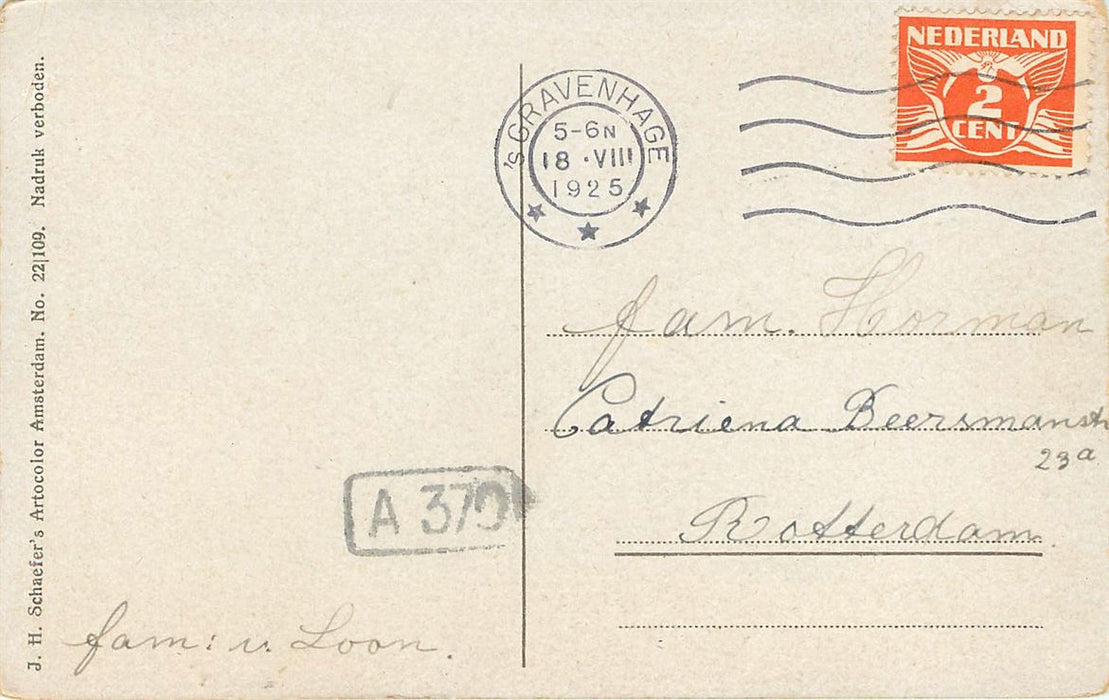 J. H. Schaefer's Artocolor Amsterdam. No. 22|109. Nadruk verboden.
'sGRAVENHAGE
5-6N
18 ·VIII
1925
NEDERLAND
2
CENT
fam. Horman
Catriena Beersmanstr
23a
Rotterdam.
A 370
fam: v. Loon.